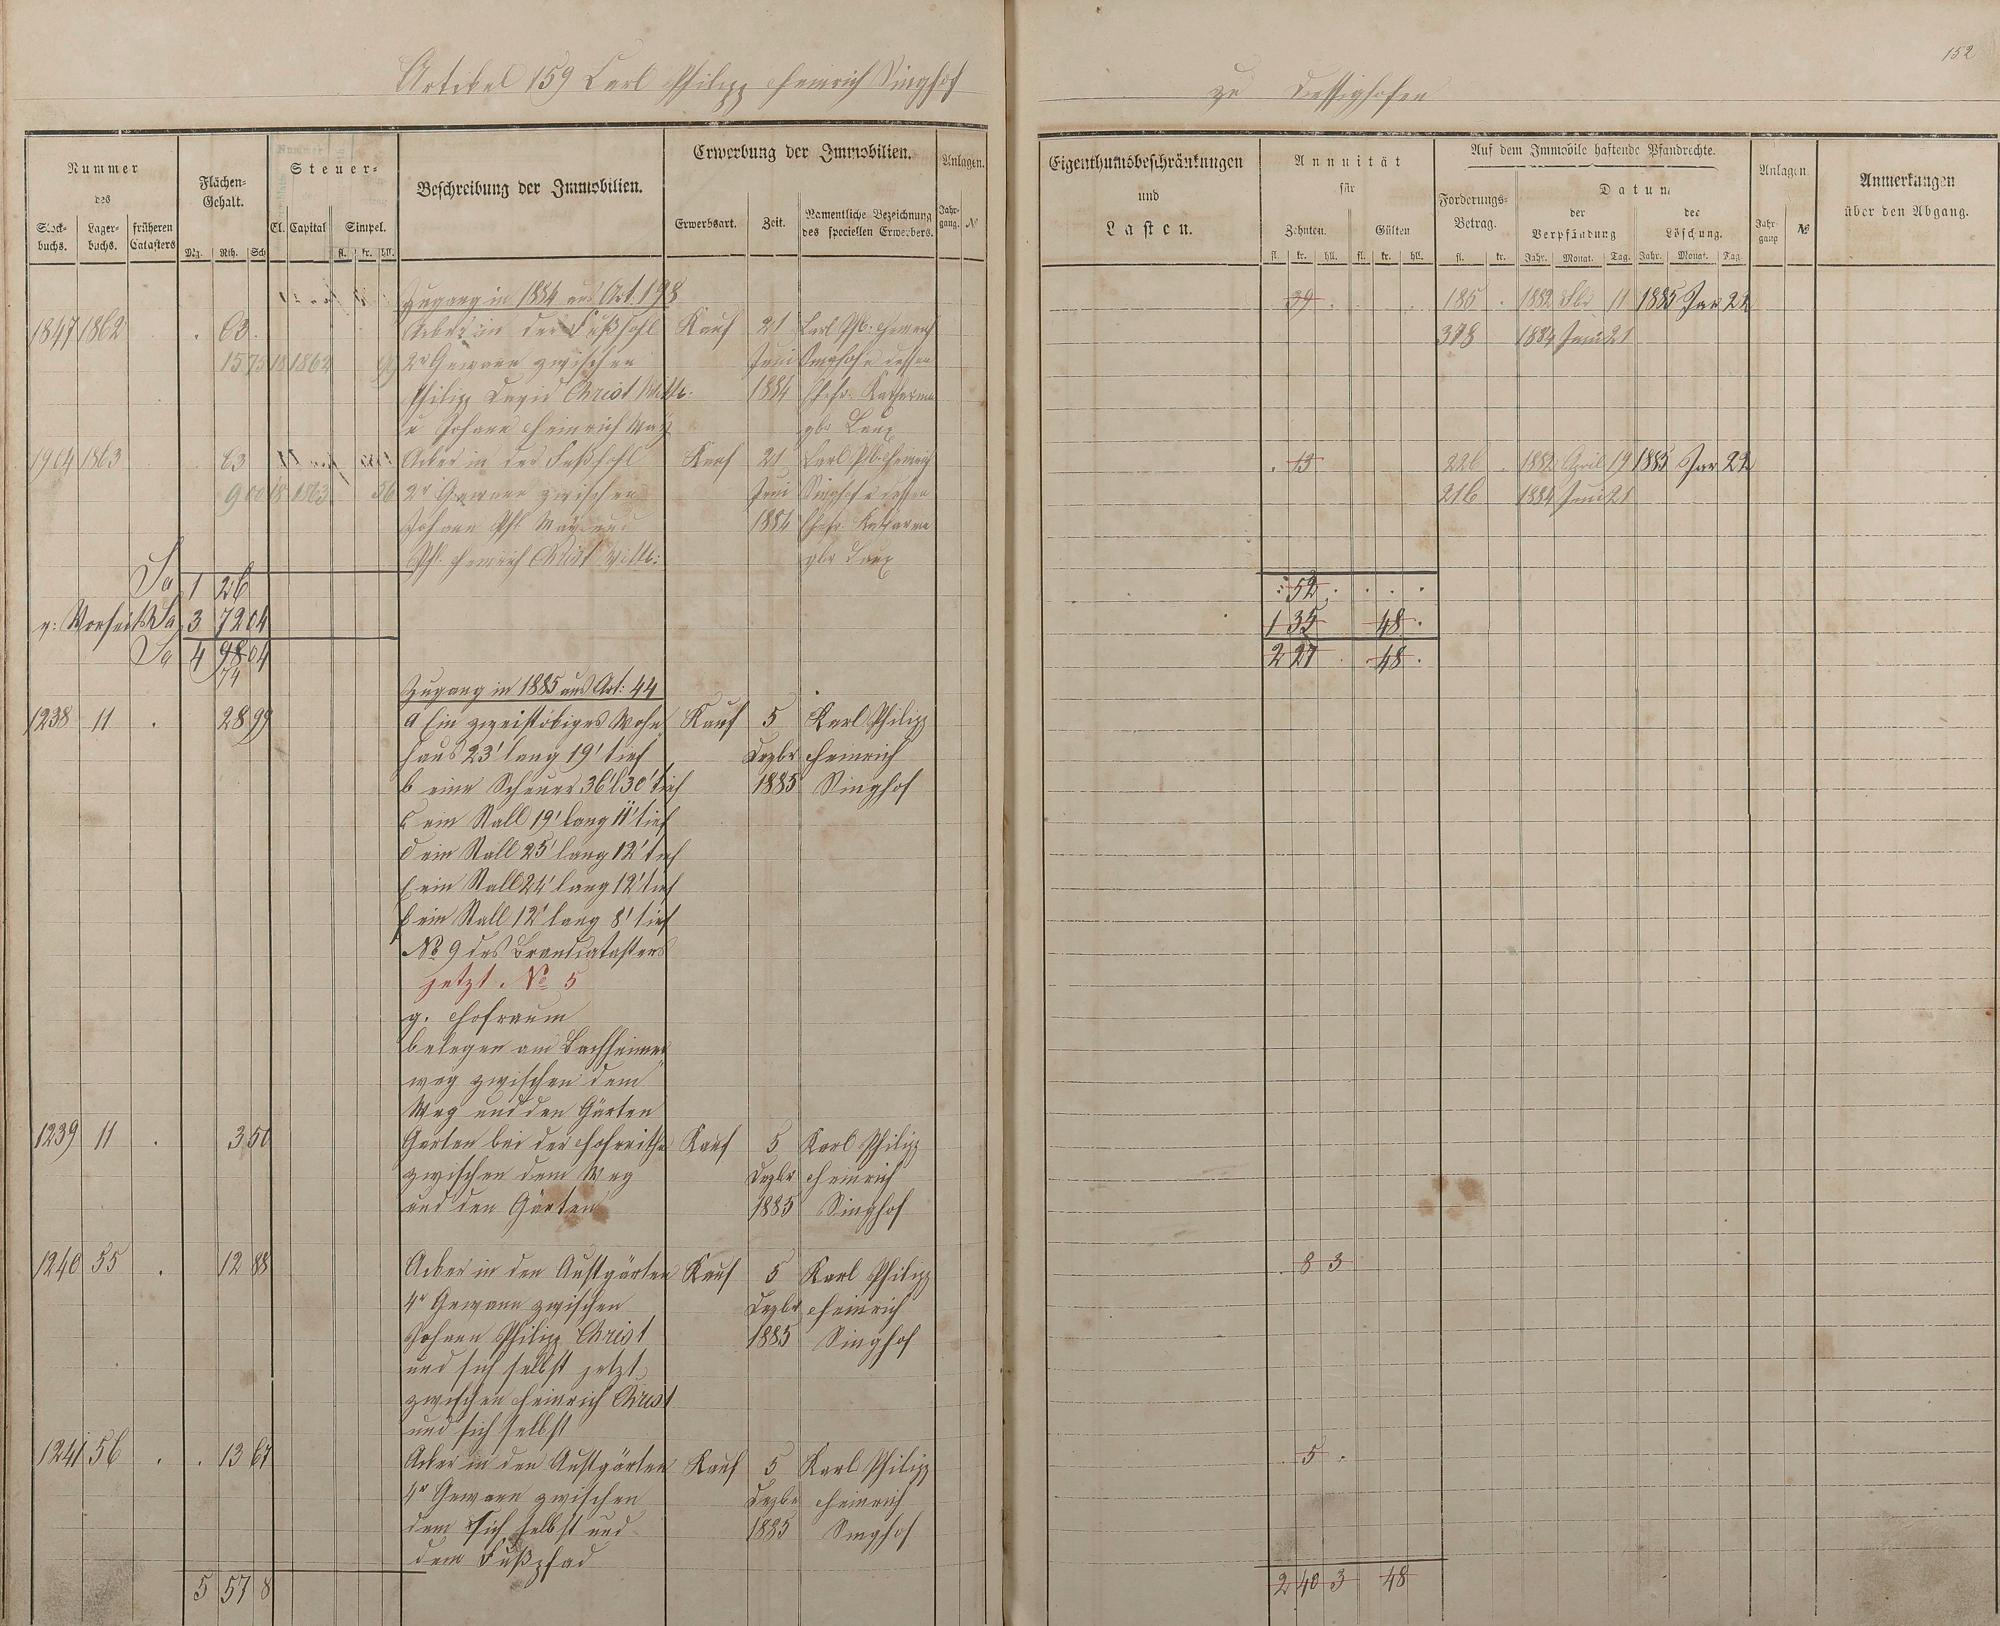 152
Artikel 159 Carl Philipp Heinrich Singhof
zu Dessighofen
Nummer
des
Stock-
buchs.
Lager-
buchs.
früheren
Catasters
Flächen-
Gehalt.
Mg. Rth. Sch
Steuer-
Cl. Capital Simpel.
fl. kr. hll.
Beschreibung der Immobilien.
Erwerbung der Immobilien.
Erwerbsart. Zeit.
Namentliche Bezeichnung
des speciellen Erwerbers.
Anlagen.
Jahr-
gang. №
Eigenthumsbeschränkungen
und
Lasten.
Annuität
für
Zehnten. Gülten
fl. kr. hll. fl. kr. hll.
Auf dem Immobile haftende Pfandrechte.
Forderungs-
Betrag.
fl. kr.
Datum
der
Verpfändung
der
Löschung.
Jahr. Monat. Tag. Jahr. Monat. Tag.
Anlagen
Jahr-
gang №
Anmerkungen
über den Abgang.
Zugang in 1884 aus Art. 198
39 185 1882 11 1885 Jar 22
1847 1862 63 Acker in der Fußsohl Kauf 21 Carl Ph. Heinrich
378 1884 Juni 21
15 75 18 1862 2r Gewann zwischen Juni Singhof u dessen
Philipp David Christ Wittb. 1884 Ehefr. Katharina
u Johann Heinrich May gbr Laux
1904 1863 63 Acker in der Fußsohl Kauf 21 Carl Ph. Heinrich
13 226 1882 April 19 1885 Jar 22
9 00 18 1863 56 2r Gewann zwischen Juni Singhof u dessen
216 1884 Juni 21
Johann Ph. May und 1884 Ehefr. Katharina
Ph. Heinrich Christ Wittb: gbr Laux
Sa 1 26
52
v: Vorseite Sa 3 72 04
1 35 48
Sa 4 98 04
2 27 48
74
Zugang in 1885 aus Art: 44
1238 11 28 99 a Ein zweistökiges Wohn Kauf 5 Karl Philipp
haus 23' lang 19' tief Dezbr Heinrich
b eine Scheuer 36' l 30' tief 1885 Singhof
c ein Stall 19' lang 11' tief
d ein Stall 25' lang 12' tief
e ein Stall 24' lang 12' tief
f ein Stall 12' lang 8' tief
№ 9 des Brandcatasters
jetzt № 5
g. Hofraum
belegen am Bachheimer
weg zwischen dem
Weg und den Gärten
1239 11 3 50 Garten bei der Hofreithe Kauf 5 Karl Philipp
zwischen dem Weg Dezbr Heinrich
und den Gärten 1885 Singhof
1240 55 12 88 Acker in den Austgärten Kauf 5 Karl Philipp
8 3
4r Gewann zwischen Dezbr Heinrich
Johann Philipp Christ 1885 Singhof
und sich selbst jetzt
zwischen Heinrich Christ
und sich selbst
1241 56 13 67 Acker in den Austgärten Kauf 5 Karl Philipp
5
4r Gewann zwischen Dezbr Heinrich
dem sich selbst und 1885 Singhof
dem Fußpfad
5 57 8
2 40 3 48